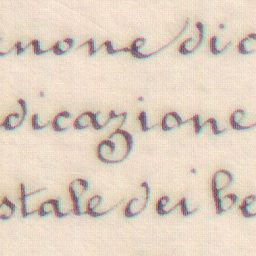 enone di c
dicazione
stale dei be